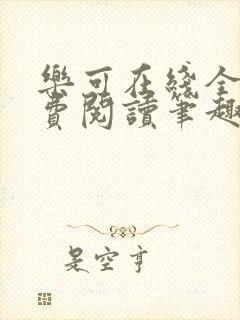 樂可在綫全
費閱讀筆趣
是空亨